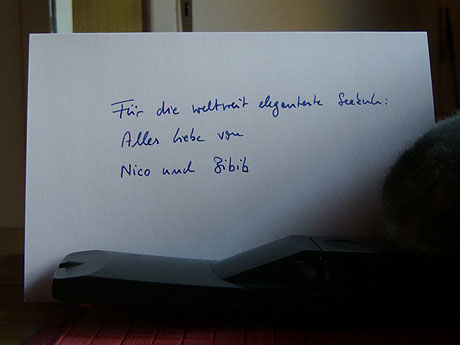 Für die weltweit eleganteste Seekuh:
Alles Liebe von
Nico und Bibib